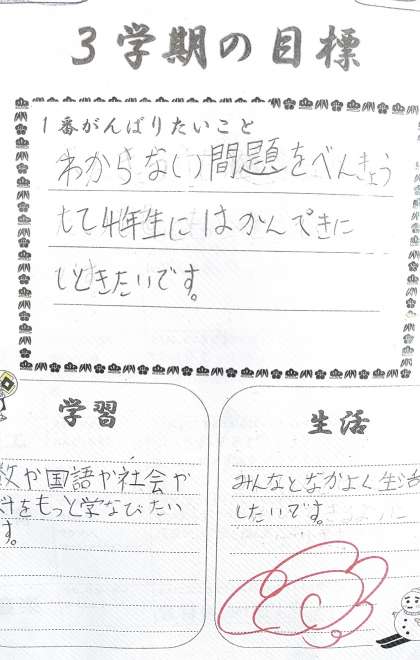 3学期の目標
1番がんばりたいこと
わからない問題をべんきょう
して4年生にはかんぺきに
しときたいです。
学習
数や国語や社会や
科をもっと学なびたい
す。
生活
みんなとなかよく生活
したいです。